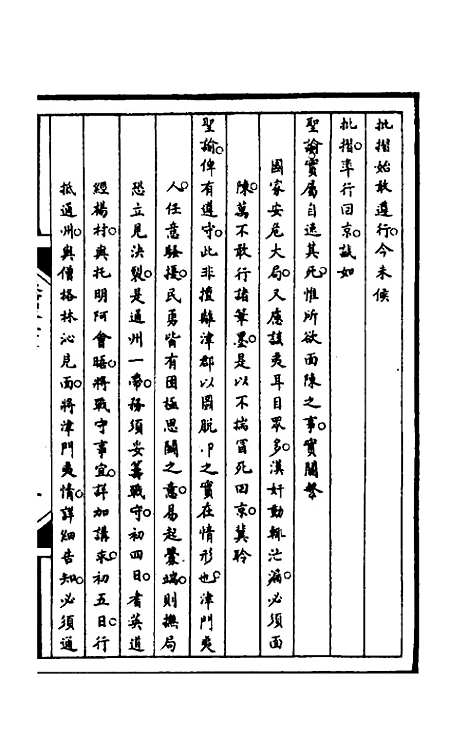 批摺始敢遵行今未候
批摺率行回京誠如
聖諭實屬自速其死惟所欲面陳之事實關繫
國家安危大局又慮該夷耳目眾多漢奸動輒洩漏必須面
陳萬不敢行諸筆墨是以不揣冒死回京冀聆
聖諭俾有遵守此非擅離津郡以圖脫卸之實在情形也津門夷
人任意騷擾民勇皆有困極思鬬之意易起釁端則撫局
恐立見決裂是通州一帶務須妥籌戰守初四日耆英道
經楊村與托明阿會晤將戰守事宜詳加講求初五日行
抵通州與僧格林沁見面將津門夷情詳細告知必須通